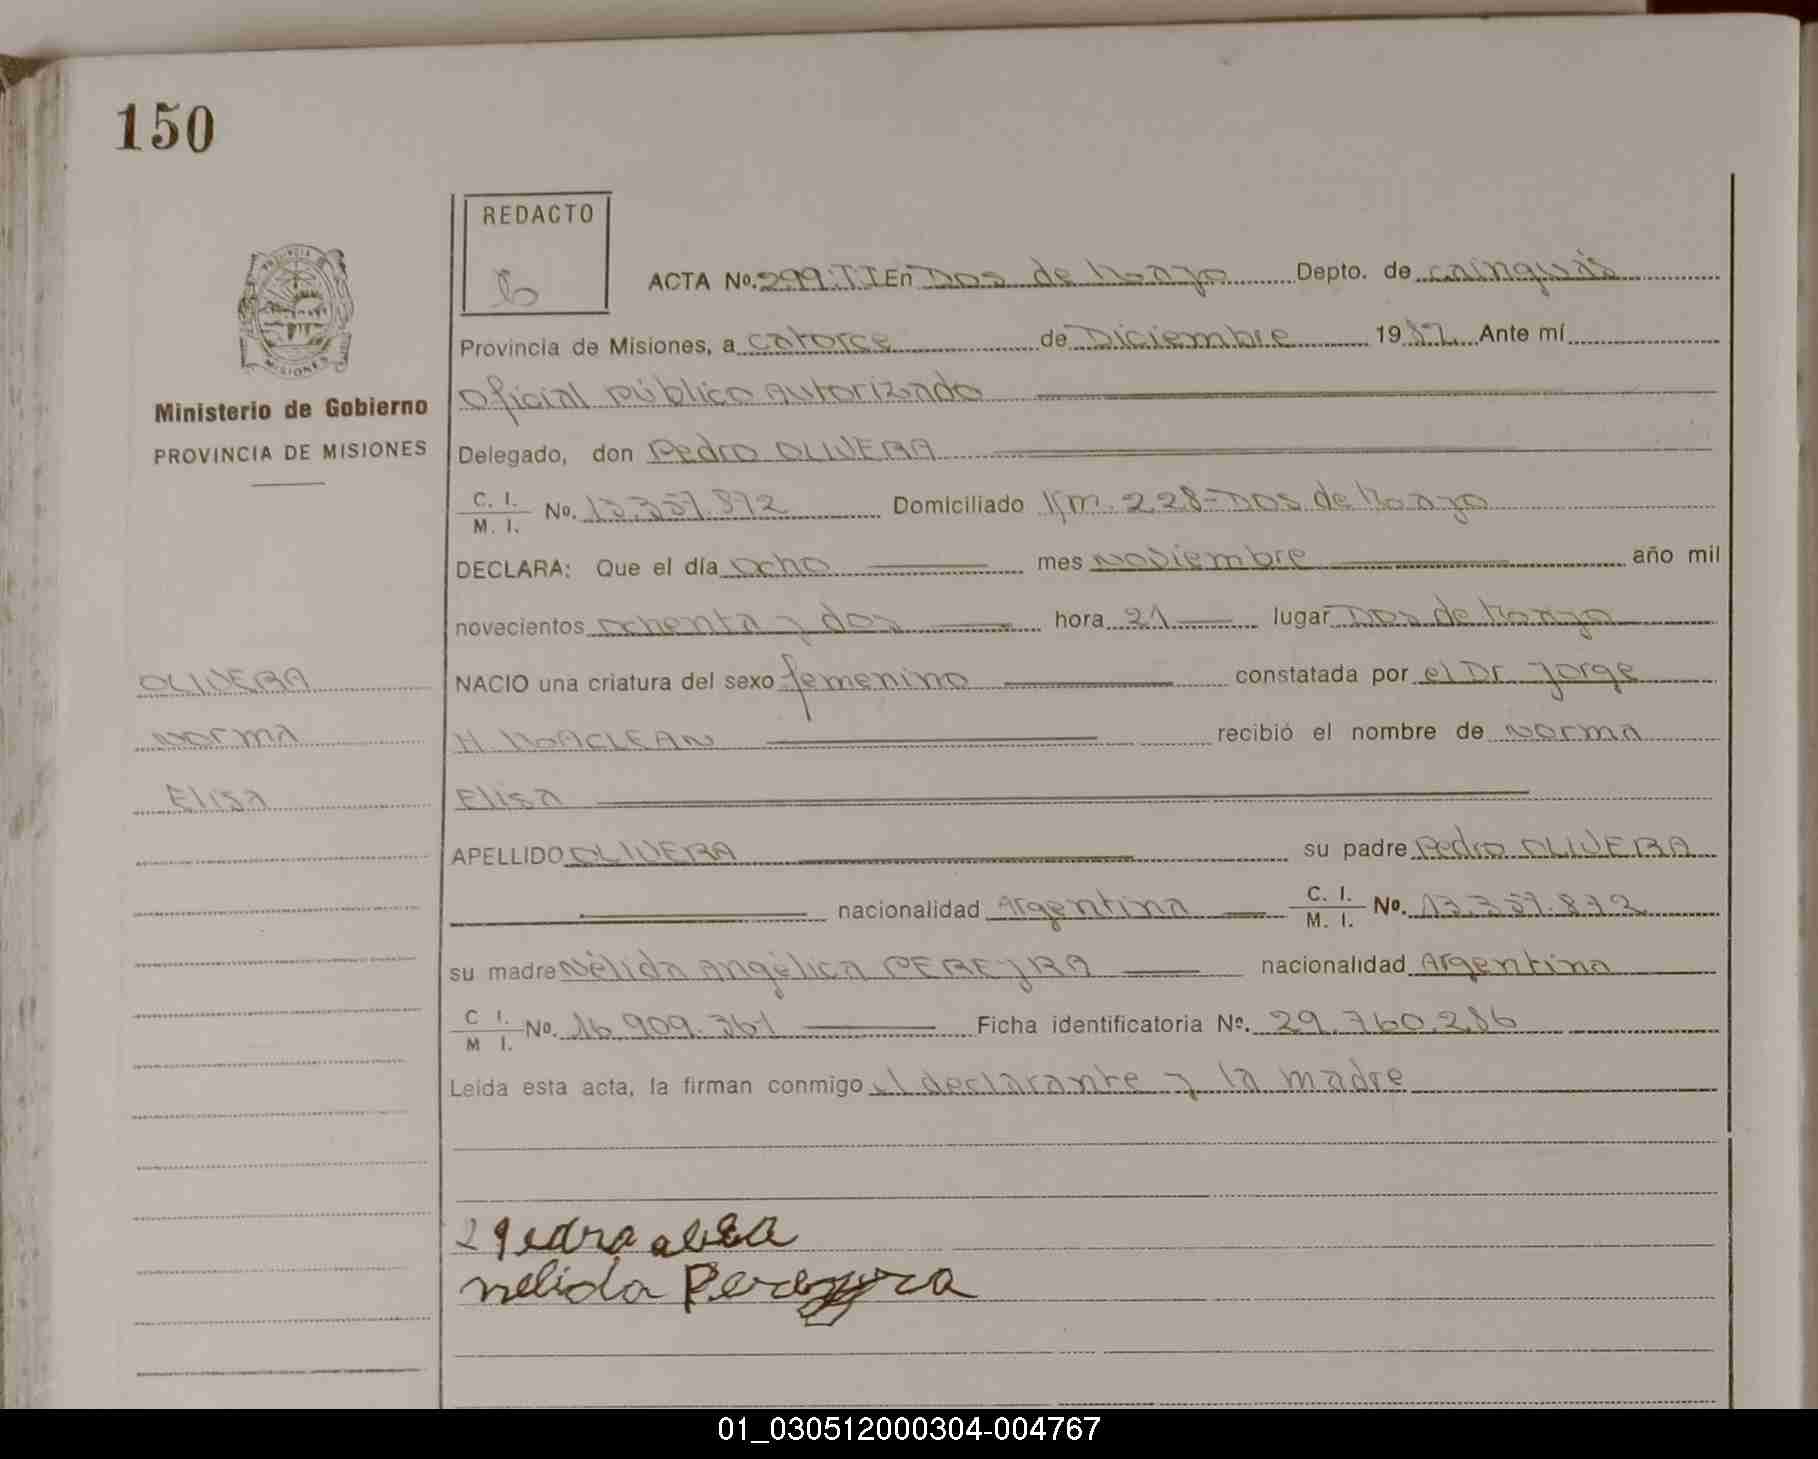 150
REDACTO
ACTA No. 299.TI En Dos de Mayo Depto. de cainguás
Provincia de Misiones, a catorce de Diciembre 1982 Ante mí
Ministerio de Gobierno
PROVINCIA DE MISIONES
Oficial público Autorizado
Delegado, don Pedro OLIVERA
C. I.
M. I. No. 13.357.872 Domiciliado Km. 228-Dos de Mayo
DECLARA: Que el día ocho mes noviembre año mil
novecientos ochenta y dos hora 21 lugar Dos de Mayo
OLIVERA
NACIO una criatura del sexo femenino constatada por el Dr. Jorge
Norma
H MACLEAN recibió el nombre de Norma
Elisa
Elisa
APELLIDO OLIVERA su padre Pedro OLIVERA
nacionalidad Argentina C. I.
M. I. No. 13.357.872
su madre Nélida Angélica PEREYRA nacionalidad Argentina
C I.
M I. No. 16.909.361 Ficha identificatoria No. 29.760.286
Leída esta acta, la firman conmigo el declarante y la madre
nelida Pereyra
01_030512000304-004767